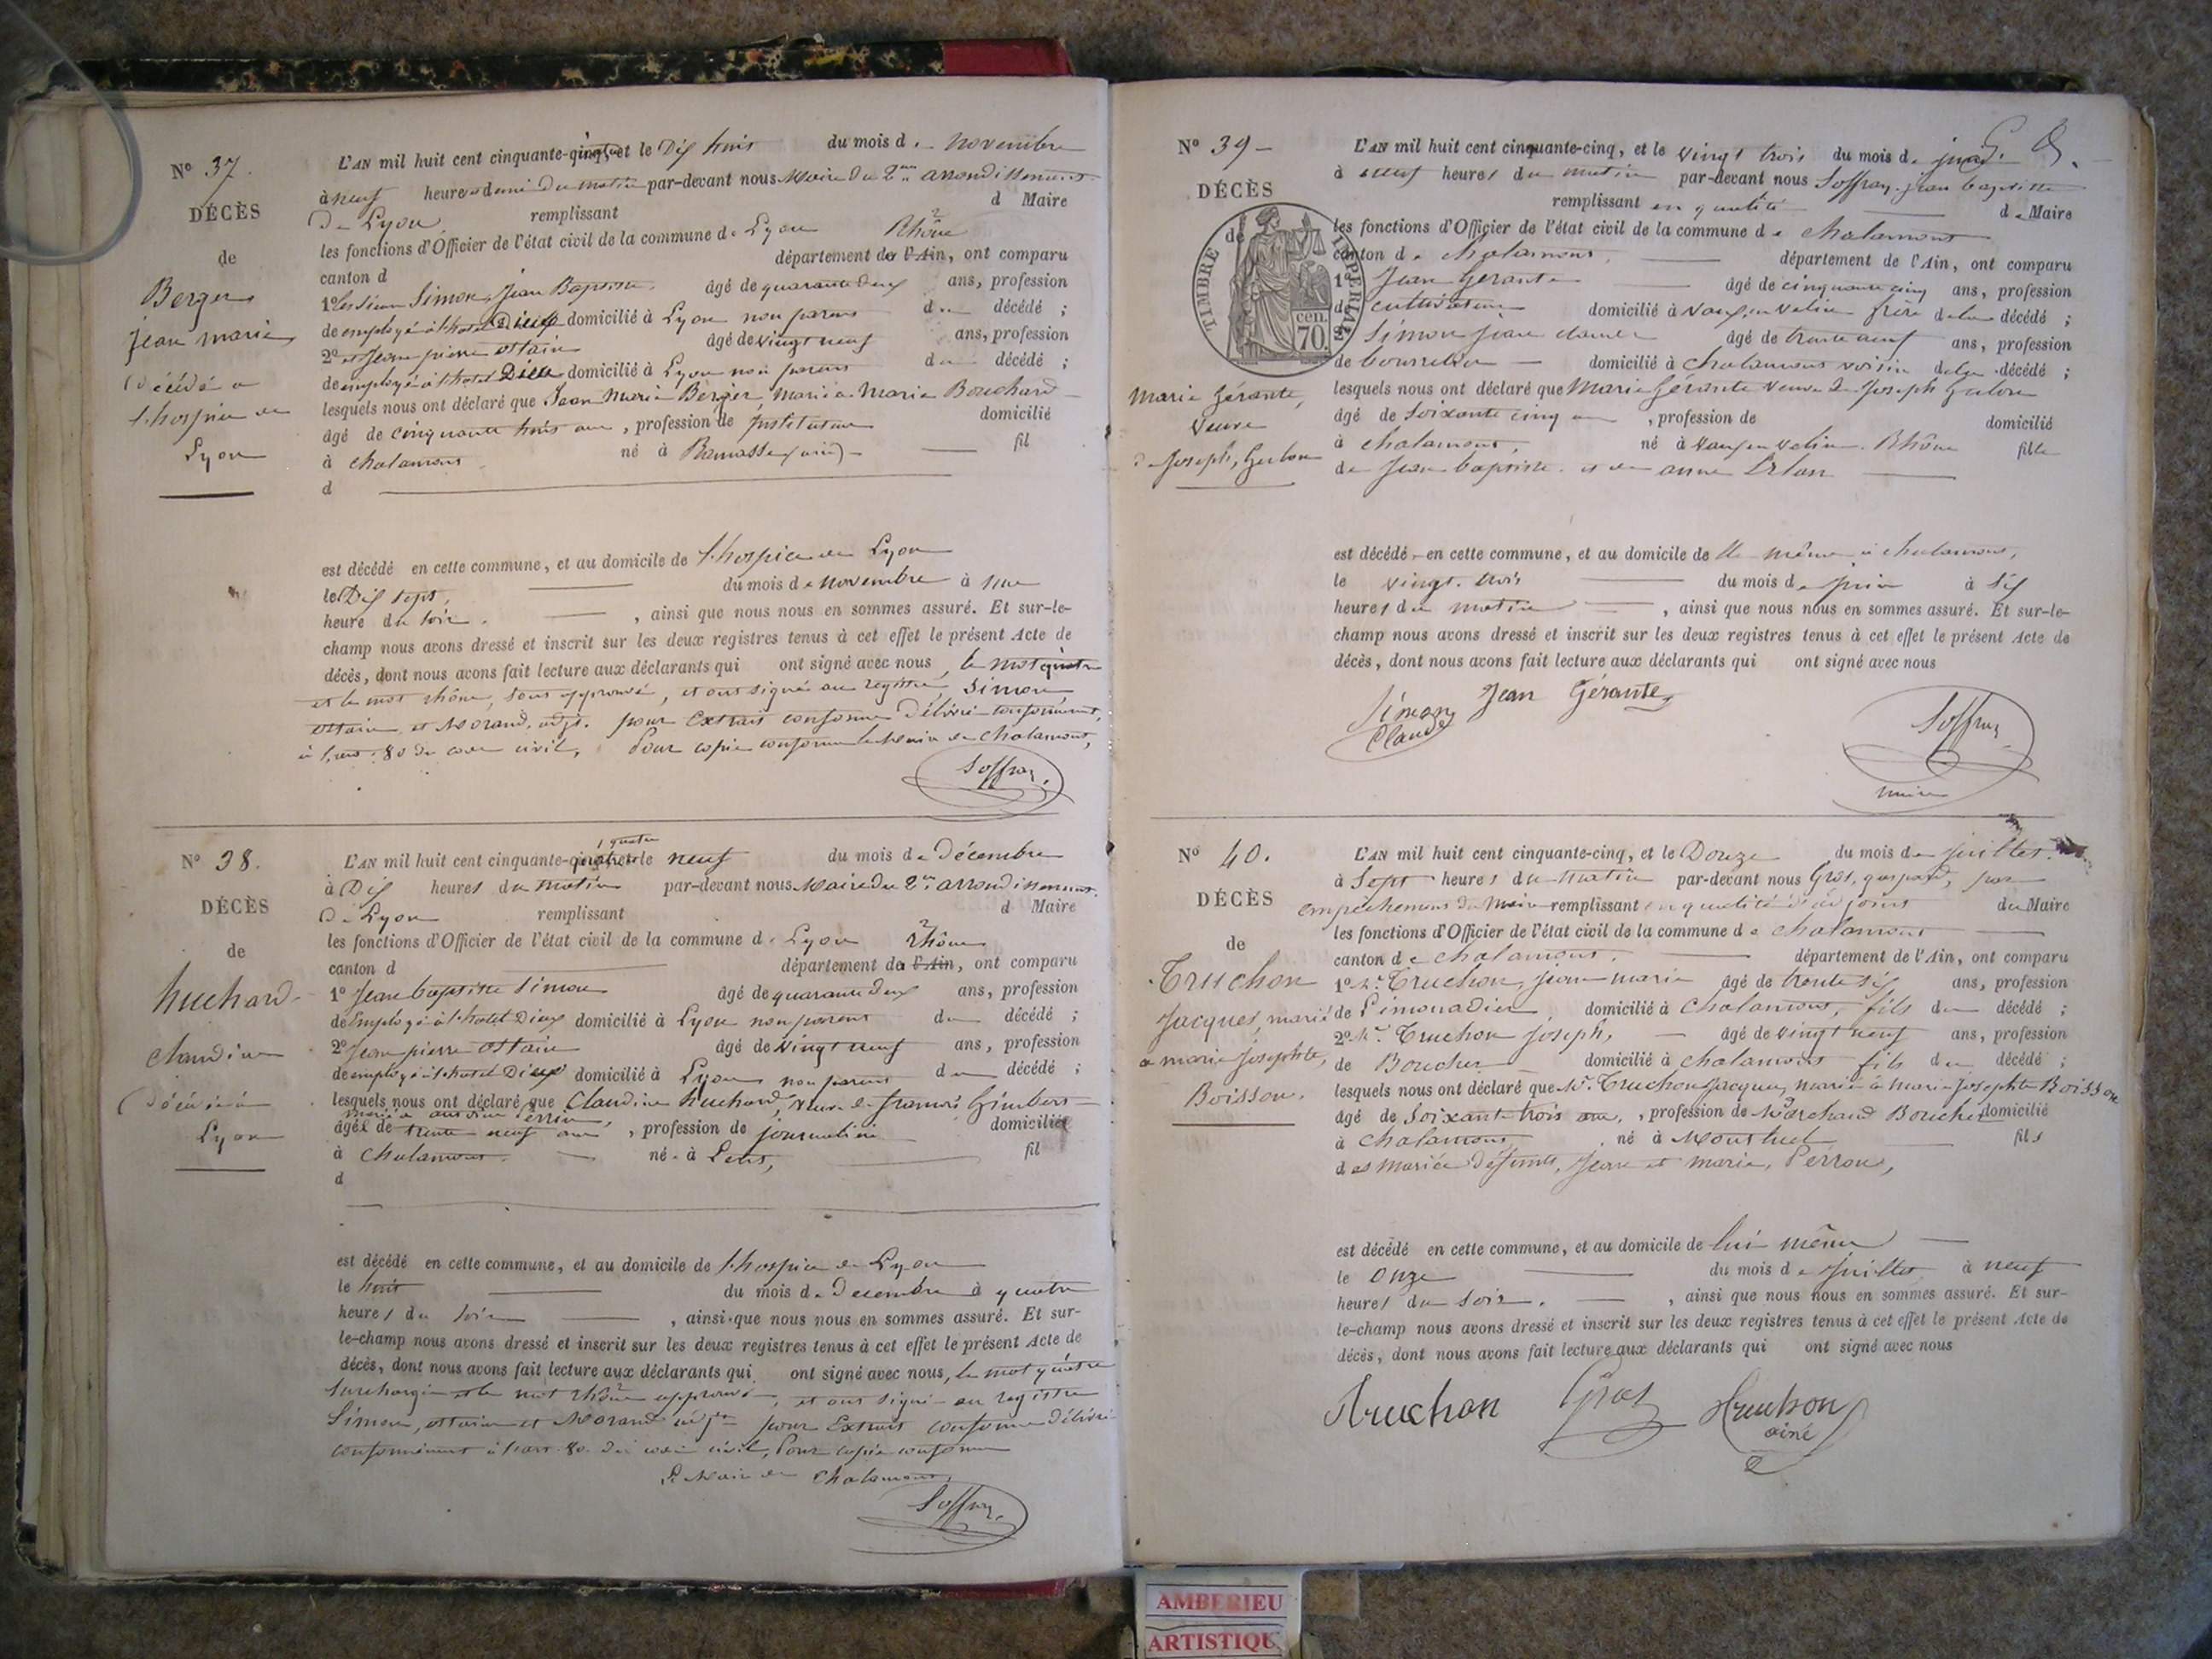 N° 37.
DÉCÈS
de
Berger
Jean marie
décédé a
l'hospice de
Lyon
L'AN mil huit cent cinquante-quatre et le Dix huit du mois de novembre
à neuf heures & demi du matin par-devant nous Maire du 2me arrondissement
De Lyon remplissant d Maire
les fonctions d'Officier de l'état civil de la commune de Lyon Rhône
canton d département de l'Ain, ont comparu
1° les sieurs Simon, Jean Baptiste, âgé de quarante deux ans, profession
de employé à l'hotel Dieu domicilié à Lyon non parent du décédé ;
2° et Jean pierre ottain âgé de vingt neuf ans, profession
de employé à l'hotel Dieu domicilié à Lyon non parent du décédé ;
lesquels nous ont déclaré que Jean Marie Berger, marié à Marie Bouchard
âgé de cinquante trois ans, profession de Instituteur domicilié
à chalamont né à Ramasse (ain) fil
d
est décédé en cette commune, et au domicile de l'hospice de Lyon
le Dix sept, du mois de novembre à une
heure du soir, ainsi que nous nous en sommes assuré. Et sur-le-
champ nous avons dressé et inscrit sur les deux registres tenus à cet effet le présent Acte de
décès, dont nous avons fait lecture aux déclarants qui ont signé avec nous, le mot quatre
et le mot rhône, sont approuvé, et ont signé au registre, Simon,
ottain et Morand, adjt. pour Extrait conforme Délivré conformément,
à l'art. 80 du code civil, Pour copie conforme le Maire de Chalamont,
Soffray
N° 38.
DÉCÈS
de
huchard
claudine
décédée à
Lyon
quatre
L'AN mil huit cent cinquante-quatre et le neuf du mois de Décembre
à Dix heures du matin par-devant nous Maire du 2me arrondissement
De Lyon remplissant d Maire
les fonctions d'Officier de l'état civil de la commune de Lyon Rhône
canton d département de l'Ain, ont comparu
1° Jean baptiste Simon âgé de quarante deux ans, profession
de Employé à l'hotel Dieu domicilié à Lyon non parent du décédé ;
2° Jean pierre ottain âgé de vingt neuf ans, profession
de employé à l'hotel Dieu domicilié à Lyon non parent du décédé ;
lesquels nous ont déclaré que Claudine huchard, veuve de francois Gimbert
mariée antoine Perrin,
âgée de trente neuf ans, profession de journalière domiciliée
à Chalamont. né à Lent, fil
d
est décédé en cette commune, et au domicile de l'hospice de Lyon
le huit du mois de Decembre à quatre
heures du soir, ainsi que nous nous en sommes assuré. Et sur-
le-champ nous avons dressé et inscrit sur les deux registres tenus à cet effet le présent Acte de
décès, dont nous avons fait lecture aux déclarants qui ont signé avec nous, le mot quatre
Surchargé et le mot rhône approuvé, et ont signé au registre
Simon, ottain et Morand adjt pour Extrait conforme Délivré
conformément à l'art 80 du code civil, Pour copie conforme
Le Maire de Chalamont,
Soffray
N° 39
DÉCÈS
de
TIMBRE IMPERIAL
70 cen.
Marie Gérante,
Veuve
de Joseph, Gulon
L'AN mil huit cent cinquante-cinq, et le vingt trois du mois de
à neuf heures du matin par-devant nous Soffray, jean baptiste
remplissant en qualité de Maire
les fonctions d'Officier de l'état civil de la commune de chalamont
canton de chalamont, département de l'Ain, ont comparu
1° Jean Gérante âgé de cinquante cinq ans, profession
de cultivateur domicilié à Vaux en Velin frère de la décédé ;
2° Simon Jean claude âgé de trente neuf ans, profession
de bourrelier domicilié à Chalamont voisin de la décédé ;
lesquels nous ont déclaré que Marie Gérante veuve de Joseph Gulon
âgé de soixante cinq ans, profession de domicilié
à chalamont, né à Vaux en velin. Rhône fille
de Jean baptiste et de anne
est décédé en cette commune, et au domicile de elle même à chalamont,
le vingt trois du mois de juin à six
heures du matin, ainsi que nous nous en sommes assuré. Et sur-le-
champ nous avons dressé et inscrit sur les deux registres tenus à cet effet le présent Acte de
décès, dont nous avons fait lecture aux déclarants qui ont signé avec nous
Simon Jean Gérante
Claude
Soffray
maire
N° 40.
DÉCÈS
de
Truchon
Jacques, marié
a marie Josephte,
Boisson.
L'AN mil huit cent cinquante-cinq, et le Douze du mois de juillet.
à Sept heures du matin par-devant nous Gros, gaspard, par
empêchement du Maire remplissant en qualité d'adjoint du Maire
les fonctions d'Officier de l'état civil de la commune de chalamont
canton de chalamont. département de l'Ain, ont comparu
1° Mr. Truchon, Jean marie âgé de trente six ans, profession
de Limonadier, domicilié à Chalamont, fils du décédé ;
2° Mr. Truchon Joseph, âgé de vingt neuf ans, profession
de Boucher domicilié à chalamont fils du décédé ;
lesquels nous ont déclaré que Mr. Truchon Jacques, marié à marie Josephte Boisson
âgé de Soixante trois ans, profession de Marchand Boucher domicilié
à Chalamont, né à Montluel fils
des mariés défunts, Jean et marie, Perron,
est décédé en cette commune, et au domicile de lui même
le Onze du mois de juillet à neuf
heures du soir, ainsi que nous nous en sommes assuré. Et sur-
le-champ nous avons dressé et inscrit sur les deux registres tenus à cet effet le présent Acte de
décès, dont nous avons fait lecture aux déclarants qui ont signé avec nous
Truchon Gros Truchon
ainé
AMBERIEU
ARTISTIQU